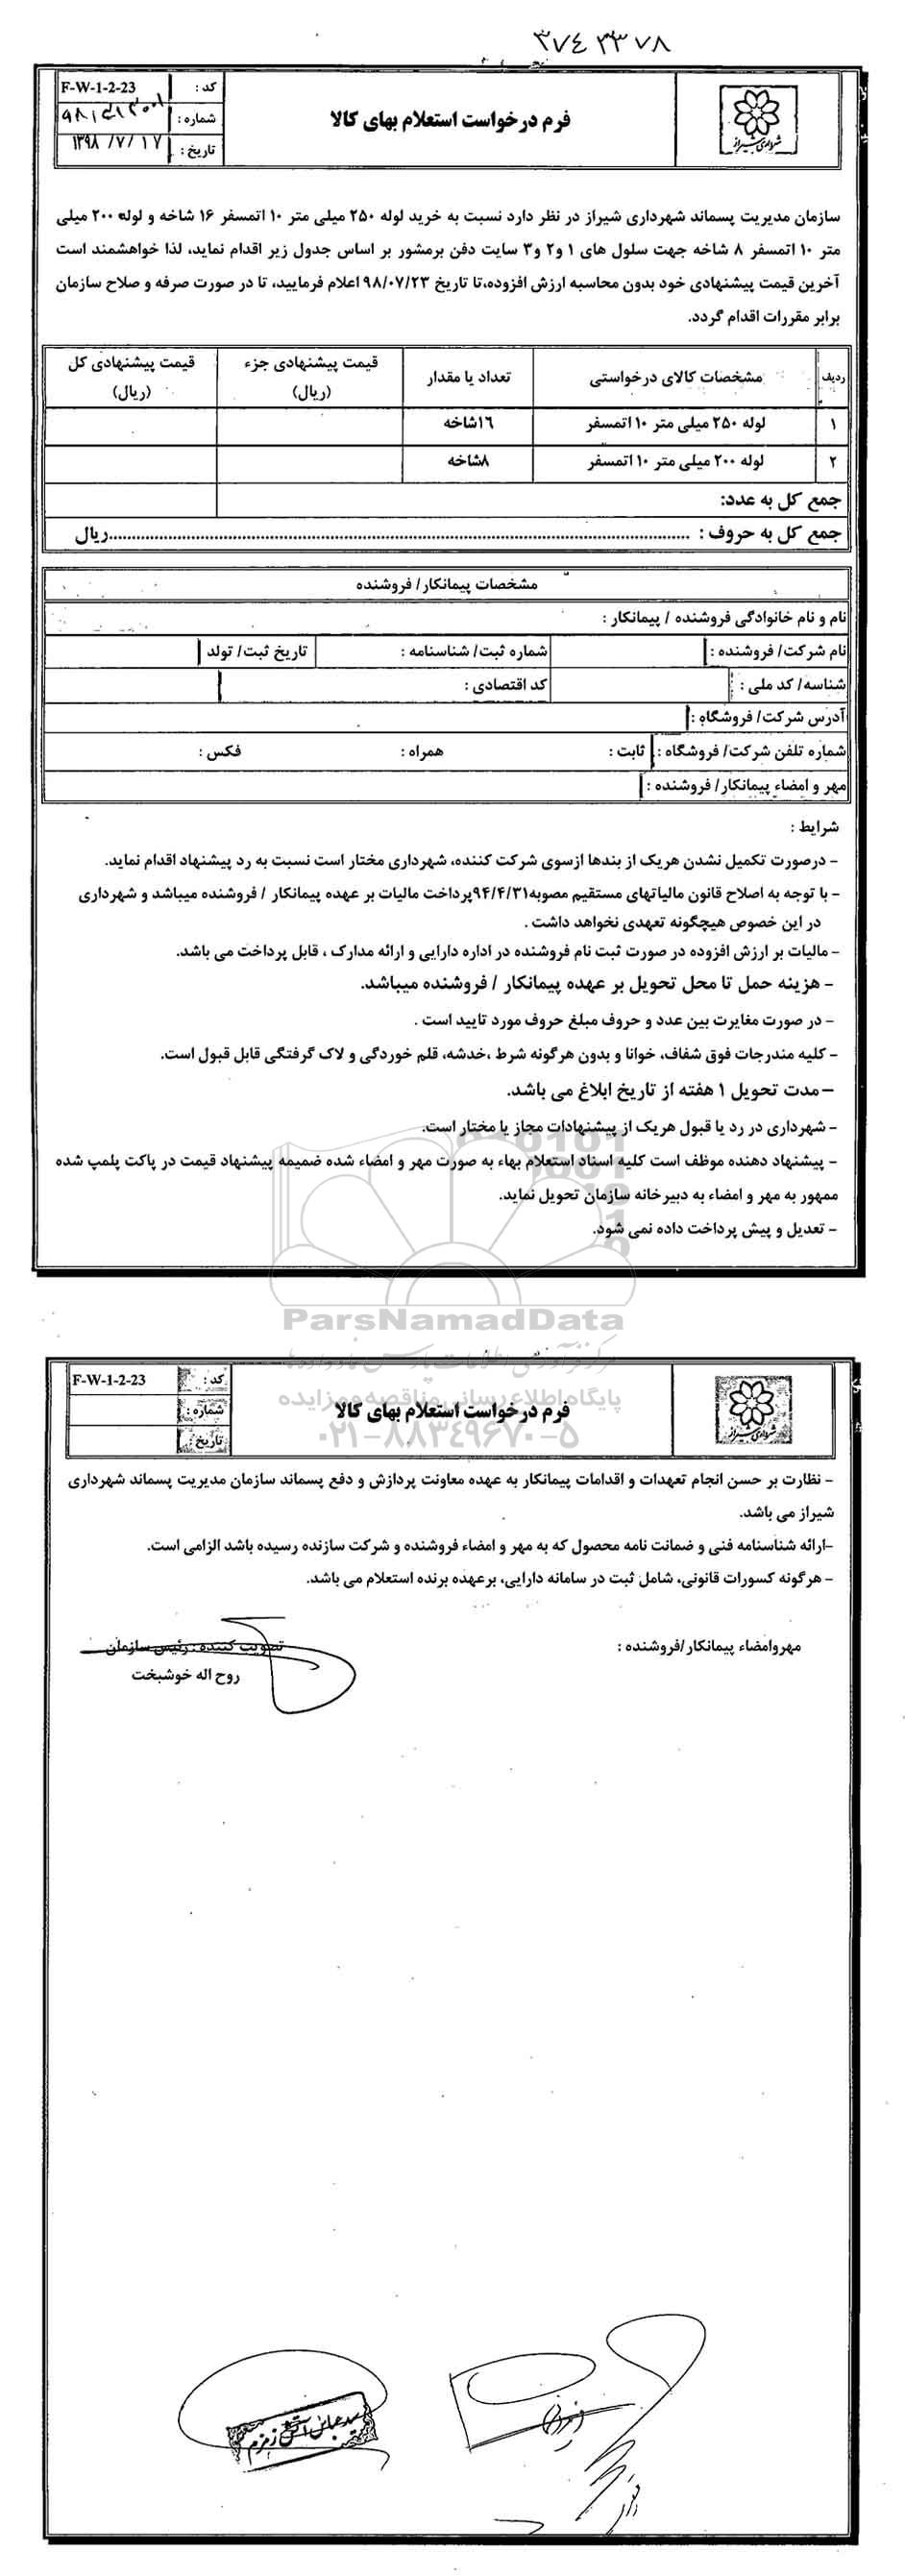 ۳۷۴۳۳۷۸
شهرداری شیراز
فرم درخواست استعلام بهای کالا
کد : F-W-1-2-23
شماره :
تاریخ : ۱۳۹۸/۷/۱۷
سازمان مدیریت پسماند شهرداری شیراز در نظر دارد نسبت به خرید لوله ۲۵۰ میلی متر ۱۰ اتمسفر ۱۶ شاخه و لوله ۲۰۰ میلی
متر ۱۰ اتمسفر ۸ شاخه جهت سلول های ۱ و۲ و۳ سایت دفن برمشور بر اساس جدول زیر اقدام نماید، لذا خواهشمند است
آخرین قیمت پیشنهادی خود بدون محاسبه ارزش افزوده،تا تاریخ ۹۸/۰۷/۲۳ اعلام فرمایید، تا در صورت صرفه و صلاح سازمان
برابر مقررات اقدام گردد.
ردیف مشخصات کالای درخواستی تعداد یا مقدار قیمت پیشنهادی جزء (ریال) قیمت پیشنهادی کل (ریال)
۱ لوله ۲۵۰ میلی متر ۱۰ اتمسفر ۱۶شاخه
۲ لوله ۲۰۰ میلی متر ۱۰ اتمسفر ۸شاخه
جمع کل به عدد:
جمع کل به حروف : ........................................................................ریال
مشخصات پیمانکار/ فروشنده
نام و نام خانوادگی فروشنده / پیمانکار :
نام شرکت/ فروشنده : شماره ثبت/ شناسنامه : تاریخ ثبت/ تولد
شناسه/ کد ملی : کد اقتصادی :
آدرس شرکت/ فروشگاه :
شماره تلفن شرکت/ فروشگاه : ثابت : همراه : فکس :
مهر و امضاء پیمانکار/ فروشنده :
شرایط :
- درصورت تکمیل نشدن هریک از بندها ازسوی شرکت کننده، شهرداری مختار است نسبت به رد پیشنهاد اقدام نماید.
- با توجه به اصلاح قانون مالیاتهای مستقیم مصوبه۹۴/۴/۳۱پرداخت مالیات بر عهده پیمانکار / فروشنده میباشد و شهرداری
در این خصوص هیچگونه تعهدی نخواهد داشت .
- مالیات بر ارزش افزوده در صورت ثبت نام فروشنده در اداره دارایی و ارائه مدارک ، قابل پرداخت می باشد.
- هزینه حمل تا محل تحویل بر عهده پیمانکار / فروشنده میباشد.
- در صورت مغایرت بین عدد و حروف مبلغ حروف مورد تایید است .
- کلیه مندرجات فوق شفاف، خوانا و بدون هرگونه شرط ،خدشه، قلم خوردگی و لاک گرفتگی قابل قبول است.
-مدت تحویل ۱ هفته از تاریخ ابلاغ می باشد.
- شهرداری در رد یا قبول هریک از پیشنهادات مجاز یا مختار است.
- پیشنهاد دهنده موظف است کلیه اسناد استعلام بهاء به صورت مهر و امضاء شده ضمیمه پیشنهاد قیمت در پاکت پلمپ شده
ممهور به مهر و امضاء به دبیرخانه سازمان تحویل نماید.
- تعدیل و پیش پرداخت داده نمی شود.
ParsNamadData
شهرداری شیراز
فرم درخواست استعلام بهای کالا
کد : F-W-1-2-23
شماره :
تاریخ :
پایگاه اطلاع رسانی مناقصه و مزایده
۰۲۱-۸۸۳۴۹۶۷۰-۵
- نظارت بر حسن انجام تعهدات و اقدامات پیمانکار به عهده معاونت پردازش و دفع پسماند سازمان مدیریت پسماند شهرداری
شیراز می باشد.
-ارائه شناسنامه فنی و ضمانت نامه محصول که به مهر و امضاء فروشنده و شرکت سازنده رسیده باشد الزامی است.
- هرگونه کسورات قانونی، شامل ثبت در سامانه دارایی، برعهده برنده استعلام می باشد.
مهروامضاء پیمانکار/فروشنده :
تصویب کننده : رئیس سازمان
روح اله خوشبخت